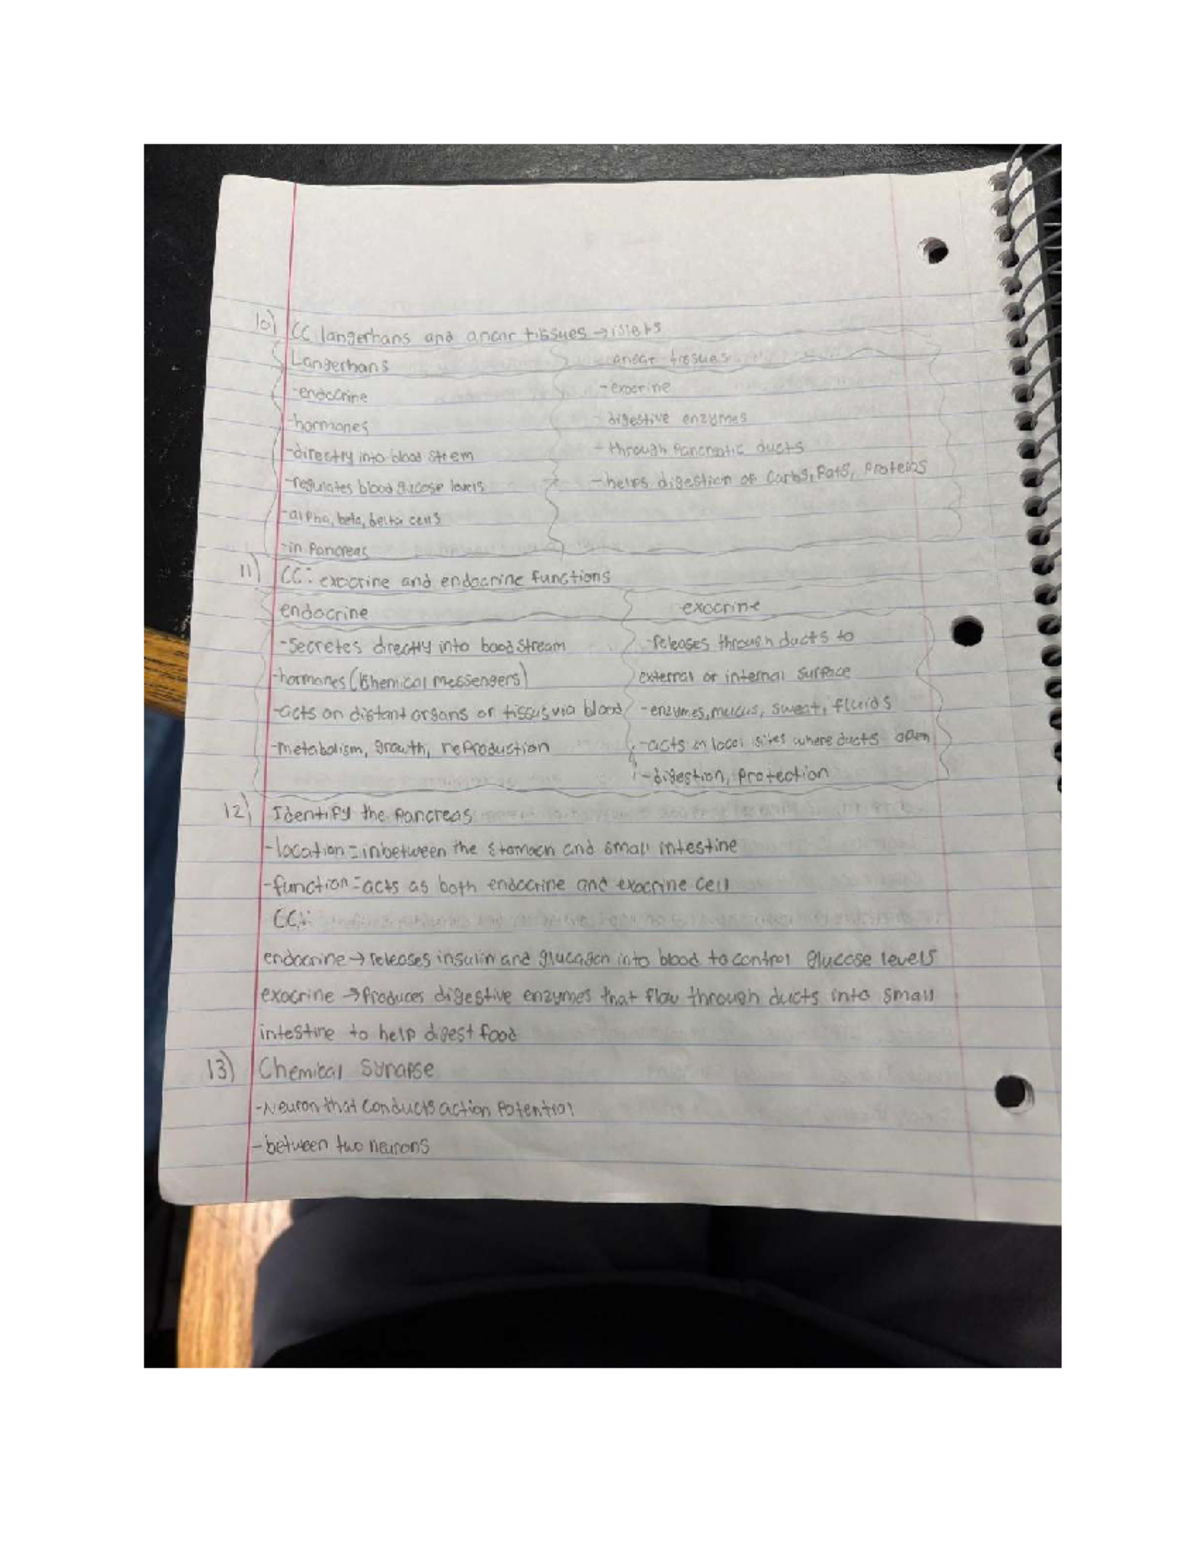 10) CC langerhans and ancar tissues → islets
Langerhans
ancar tissues
-endocrine
-exocrine
-hormones
-digestive enzymes
-directly into blood strem
-through Pancreatic ducts
-regulates blood glucose levels
-helps digestion of carbs, fats, proteins
-alpha, beta, delta cells
-in Pancreas
11) CC: exocrine and endocrine functions
endocrine
exocrine
-secretes directly into bood stream
-releases through ducts to
external or internal surface
-hormones (Chemical messengers)
-acts on distant organs or tissus via blood
-enzymes, mucus, sweat, fluids
-metabolism, growth, reproduction
-acts on local sites where ducts open
-digestion, protection
12) Identify the Pancreas
-location = inbetween the stomach and small intestine
-function = acts as both endocrine and exocrine cell
CC:
endocrine → releases insulin and glucagon into blood to control glucose levels
exocrine → Produces digestive enzymes that flow through ducts into small
intestine to help digest food
13) Chemical Synapse
-Neuron that conducts action Potential
-between two neurons